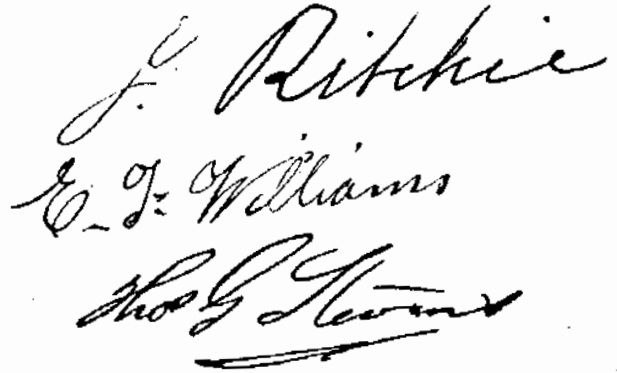 J. Ritchie
E. F. Williams
Thos G Stevens